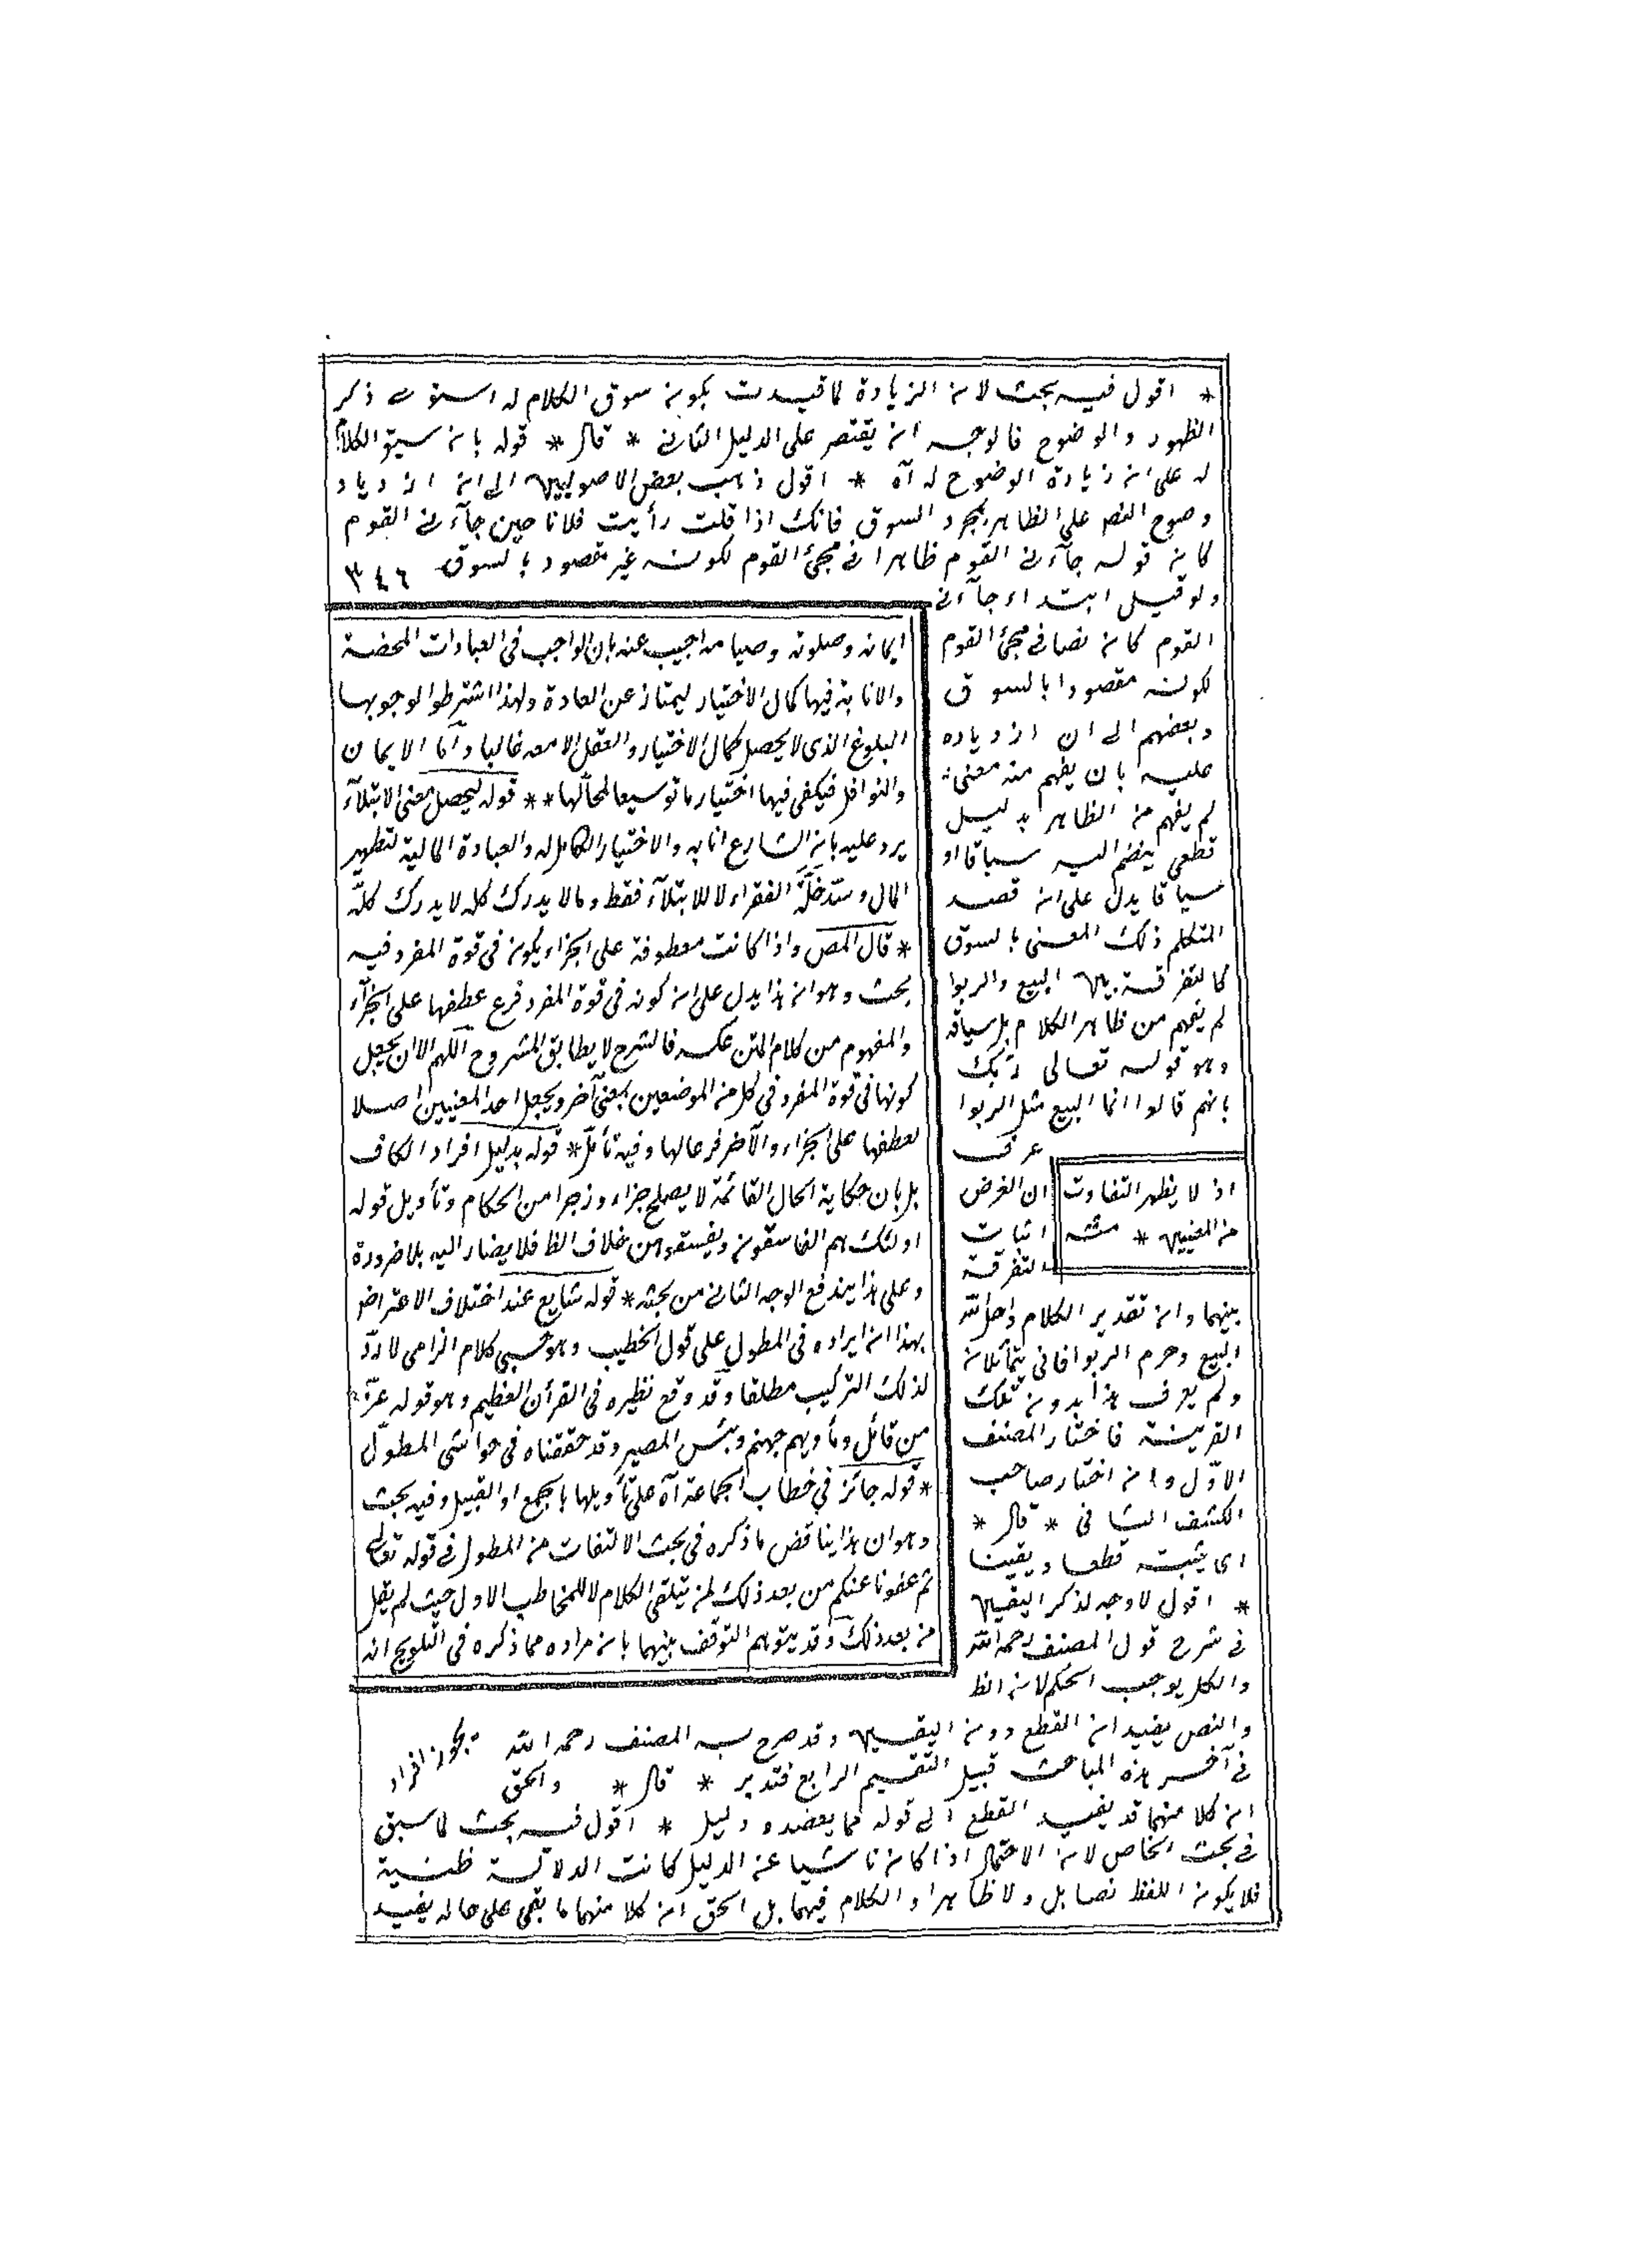 * اقول فيه بحث لان الزيادة لما قيدت بكون سوق الكلام له استوى ذكر
الظهور والوضوح فالوجه ان يقتصر على الدليل الثاني * قال * قوله بان سيق الكلام
له على ان زيادة الوضوح له آه * اقول ذهب بعض الاصوليين الى ان ازدياد
وضوح النص على الظاهر بمجرد السوق فانك اذا قلت رأيت فلانا حين جاءني القوم
كان قوله جاءني القوم ظاهرا في مجئ القوم لكونه غير مقصود بالسوق ٣٤٦
ولو قيل ابتداء جاءني
القوم كان نصا في مجئ القوم
لكونه مقصودا بالسوق
وبعضهم الى ان ازدياده
عليه بان يفهم منه معنى
لم يفهم من الظاهر بدليل
قطعي ينضم اليه سباقا او
سياقا يدل على ان قصد
المتكلم ذلك المعنى بالسوق
كالتفرقة بين البيع والربوا
لم يفهم من ظاهر الكلام بل سياقه
وهو قوله تعالى ذلك
بانهم قالوا انما البيع مثل الربوا
عرف
ان الغرض
اثبات
التفرقة
اذ لا يظهر التفاوت
من المعنيين * منه
بينهما وان تقدير الكلام واحل الله
البيع وحرم الربوا فاني يتماثلان
ولم يعرف هذا بدون تلك
القرينة فاختار المصنف
الاول وان اختار صاحب
الكشف الثاني * قال *
اى يثبت قطعا ويقينا
* اقول لا وجه لذكر اليقين
في شرح قول المصنف رحمه الله
والكل يوجب الحكم لان الظ
والنص يفيدان القطع دون اليقين وقد صرح به المصنف رحمه الله
في آخر هذه المباحث قبيل التقسيم الرابع فتدبر * قال * والحق
ان كلا منهما قد يفيد القطع الى قوله مما يعضده دليل * اقول فيه بحث لما سبق
في بحث الخاص لان الاحتمال اذا كان ناشيا عن الدليل كانت الدلالة ظنية
فلا يكون اللفظ نصا بل ولا ظاهرا والكلام فيهما بل الحق ان كلا منهما ما بقى على حاله يفيد
ايمانه وصلوته وصيامه اجيب عنه بان الواجب في العبادات المحضة
والانابة فيها كمال الاختيار ليمتاز عن العادة ولهذا اشترطوا لوجوبها
البلوغ الذى لا يحصل كمال الاختيار والعقل الا معه غالبا واما الايمان
والنوافل فيكفى فيها اختيار ما توسيعا لمحالها ** قوله ليحصل معنى الابتلاء
يرد عليه بان الشارع انابه والاختيار الكامل له والعبادة المالية لتطهير
المال وسد خلة الفقراء لا للابتلاء فقط وما لا يدرك كله لا يدرك كله
* قال المص واذا كانت معطوفة على الجزاء يكون في قوة المفرد فيه
بحث وهو ان هذا يدل على ان كونه في قوة المفرد فرع عطفها على الجزاء
والمفهوم من كلام المتن عكسه فالشرح لا يطابق المشروح اللهم الا ان يجعل
كونها في قوة المفرد في كل من الموضعين بمعنى آخر ويجعل احد المعنيين اصلا
لعطفها على الجزاء والآخر فرعا لها وفيه تأمل * قوله بدليل افراد الكاف
بل بان حكاية الحال القائمة لا يصلح جزاء وزجرا من الحكام وتأويل قوله
اولئك هم الفاسقون ويفسقون خلاف الظ فلا يصار اليه بلا ضرورة
وعلى هذا يندفع الوجه الثاني من بحثه * قوله شايع عند اختلاف الاعتراض
بهذا ان ايراده في المطول على قول الخطيب وهو حسبى كلام الزامى لا رد
لذلك التركيب مطلقا وقد وقع نظيره في القرآن العظيم وهو قوله عز
من قائل ومأويهم جهنم وبئس المصير وقد حققناه في حواشى المطول
* قوله جائز في خطاب الجماعة آه على تأويلها بالجمع او القبيل وفيه بحث
وهو ان هذا يناقض ما ذكره في بحث الالتفات من المطول في قوله تعالى
ثم عفونا عنكم من بعد ذلك لمن يتلقى الكلام لا للمخاطب الاول حيث لم يقل
من بعد ذلك وقد يتوهم التوقف بينهما بان مراده مما ذكره في التلويح انه
يجوز افراد